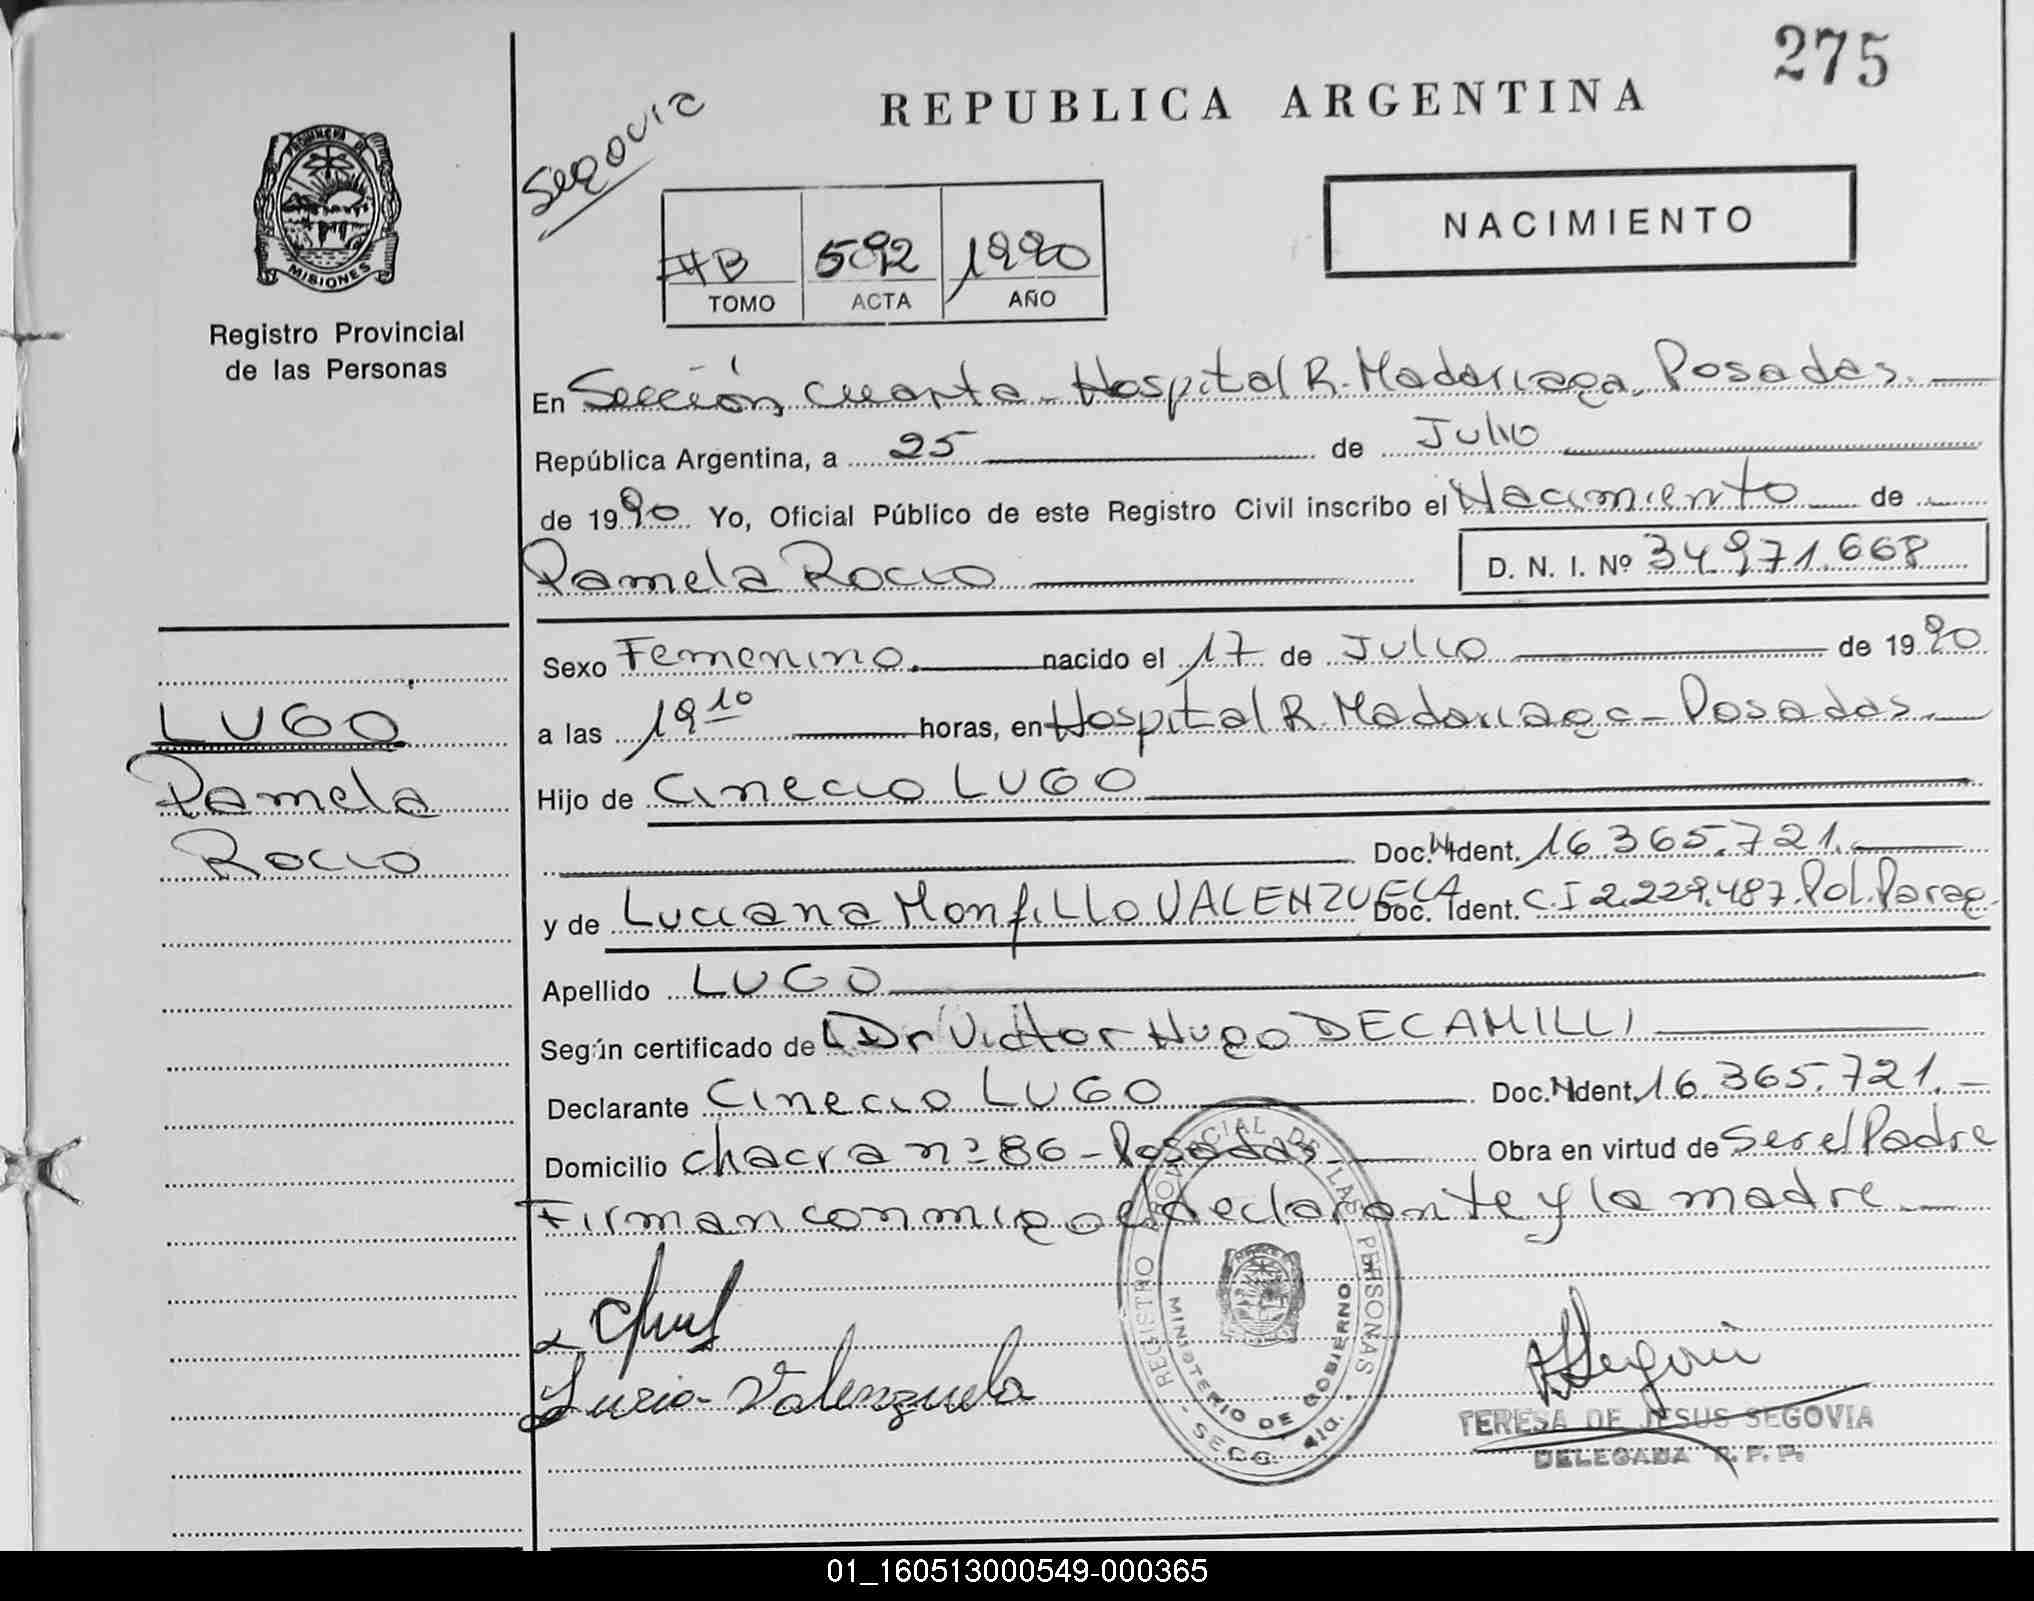 275
REPUBLICA ARGENTINA
Segovia
NACIMIENTO
PROVINCIA DE
MISIONES
Registro Provincial
de las Personas
IIB 592 1990
TOMO ACTA AÑO
En Sección cuarta - Hospital R. Madariaga, Posadas.
República Argentina, a 25 de Julio
de 1990 Yo, Oficial Público de este Registro Civil inscribo el Nacimiento de
Pamela Rocio D. N. I. Nº 34.971.668
Sexo Femenino. nacido el 17 de Julio de 1990
LUGO
Pamela
Rocio
a las 19 10 horas, en Hospital R. Madariaga - Posadas.
Hijo de Cinecio LUGO
Doc. N Ident. 16.365.721.
y de Luciana Monfillo VALENZUELA Doc. Ident. C.I 2.229.487. Pol. Parag.
Apellido LUGO
Según certificado de Dr Victor Hugo DECAMILLI
Declarante Cinecio LUGO Doc. N Ident. 16.365.721.
Domicilio chacra nº 86 - Posadas - Obra en virtud de ser el Padre
Firman conmigo el declarante y la madre
Valenzuela
REGISTRO PROVINCIAL DE LAS PERSONAS
MINISTERIO DE GOBIERNO
- SECC. 4ta. -
TERESA DE JESUS SEGOVIA
DELEGADA R. P. P.
01_160513000549-000365